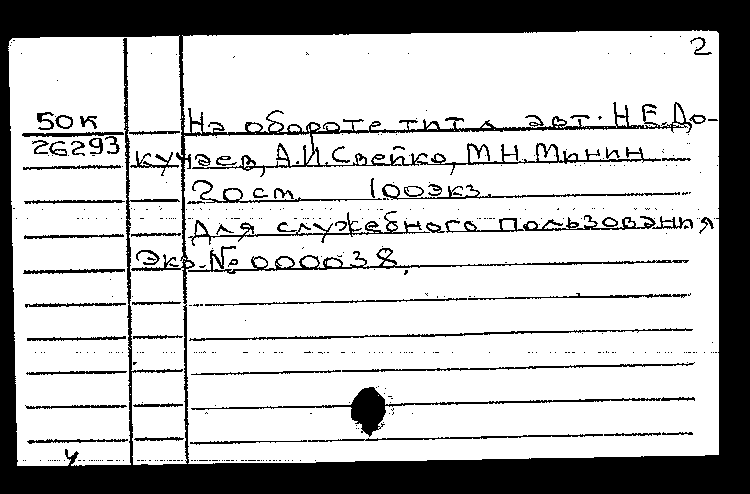 2
50к
26293
На обороте тит л авт. Н.Е.До-
кучаев, А.И.Свейко, М.Н.Минин
20 см 100экз.
Для служебного пользования
Экз.№ 000038.